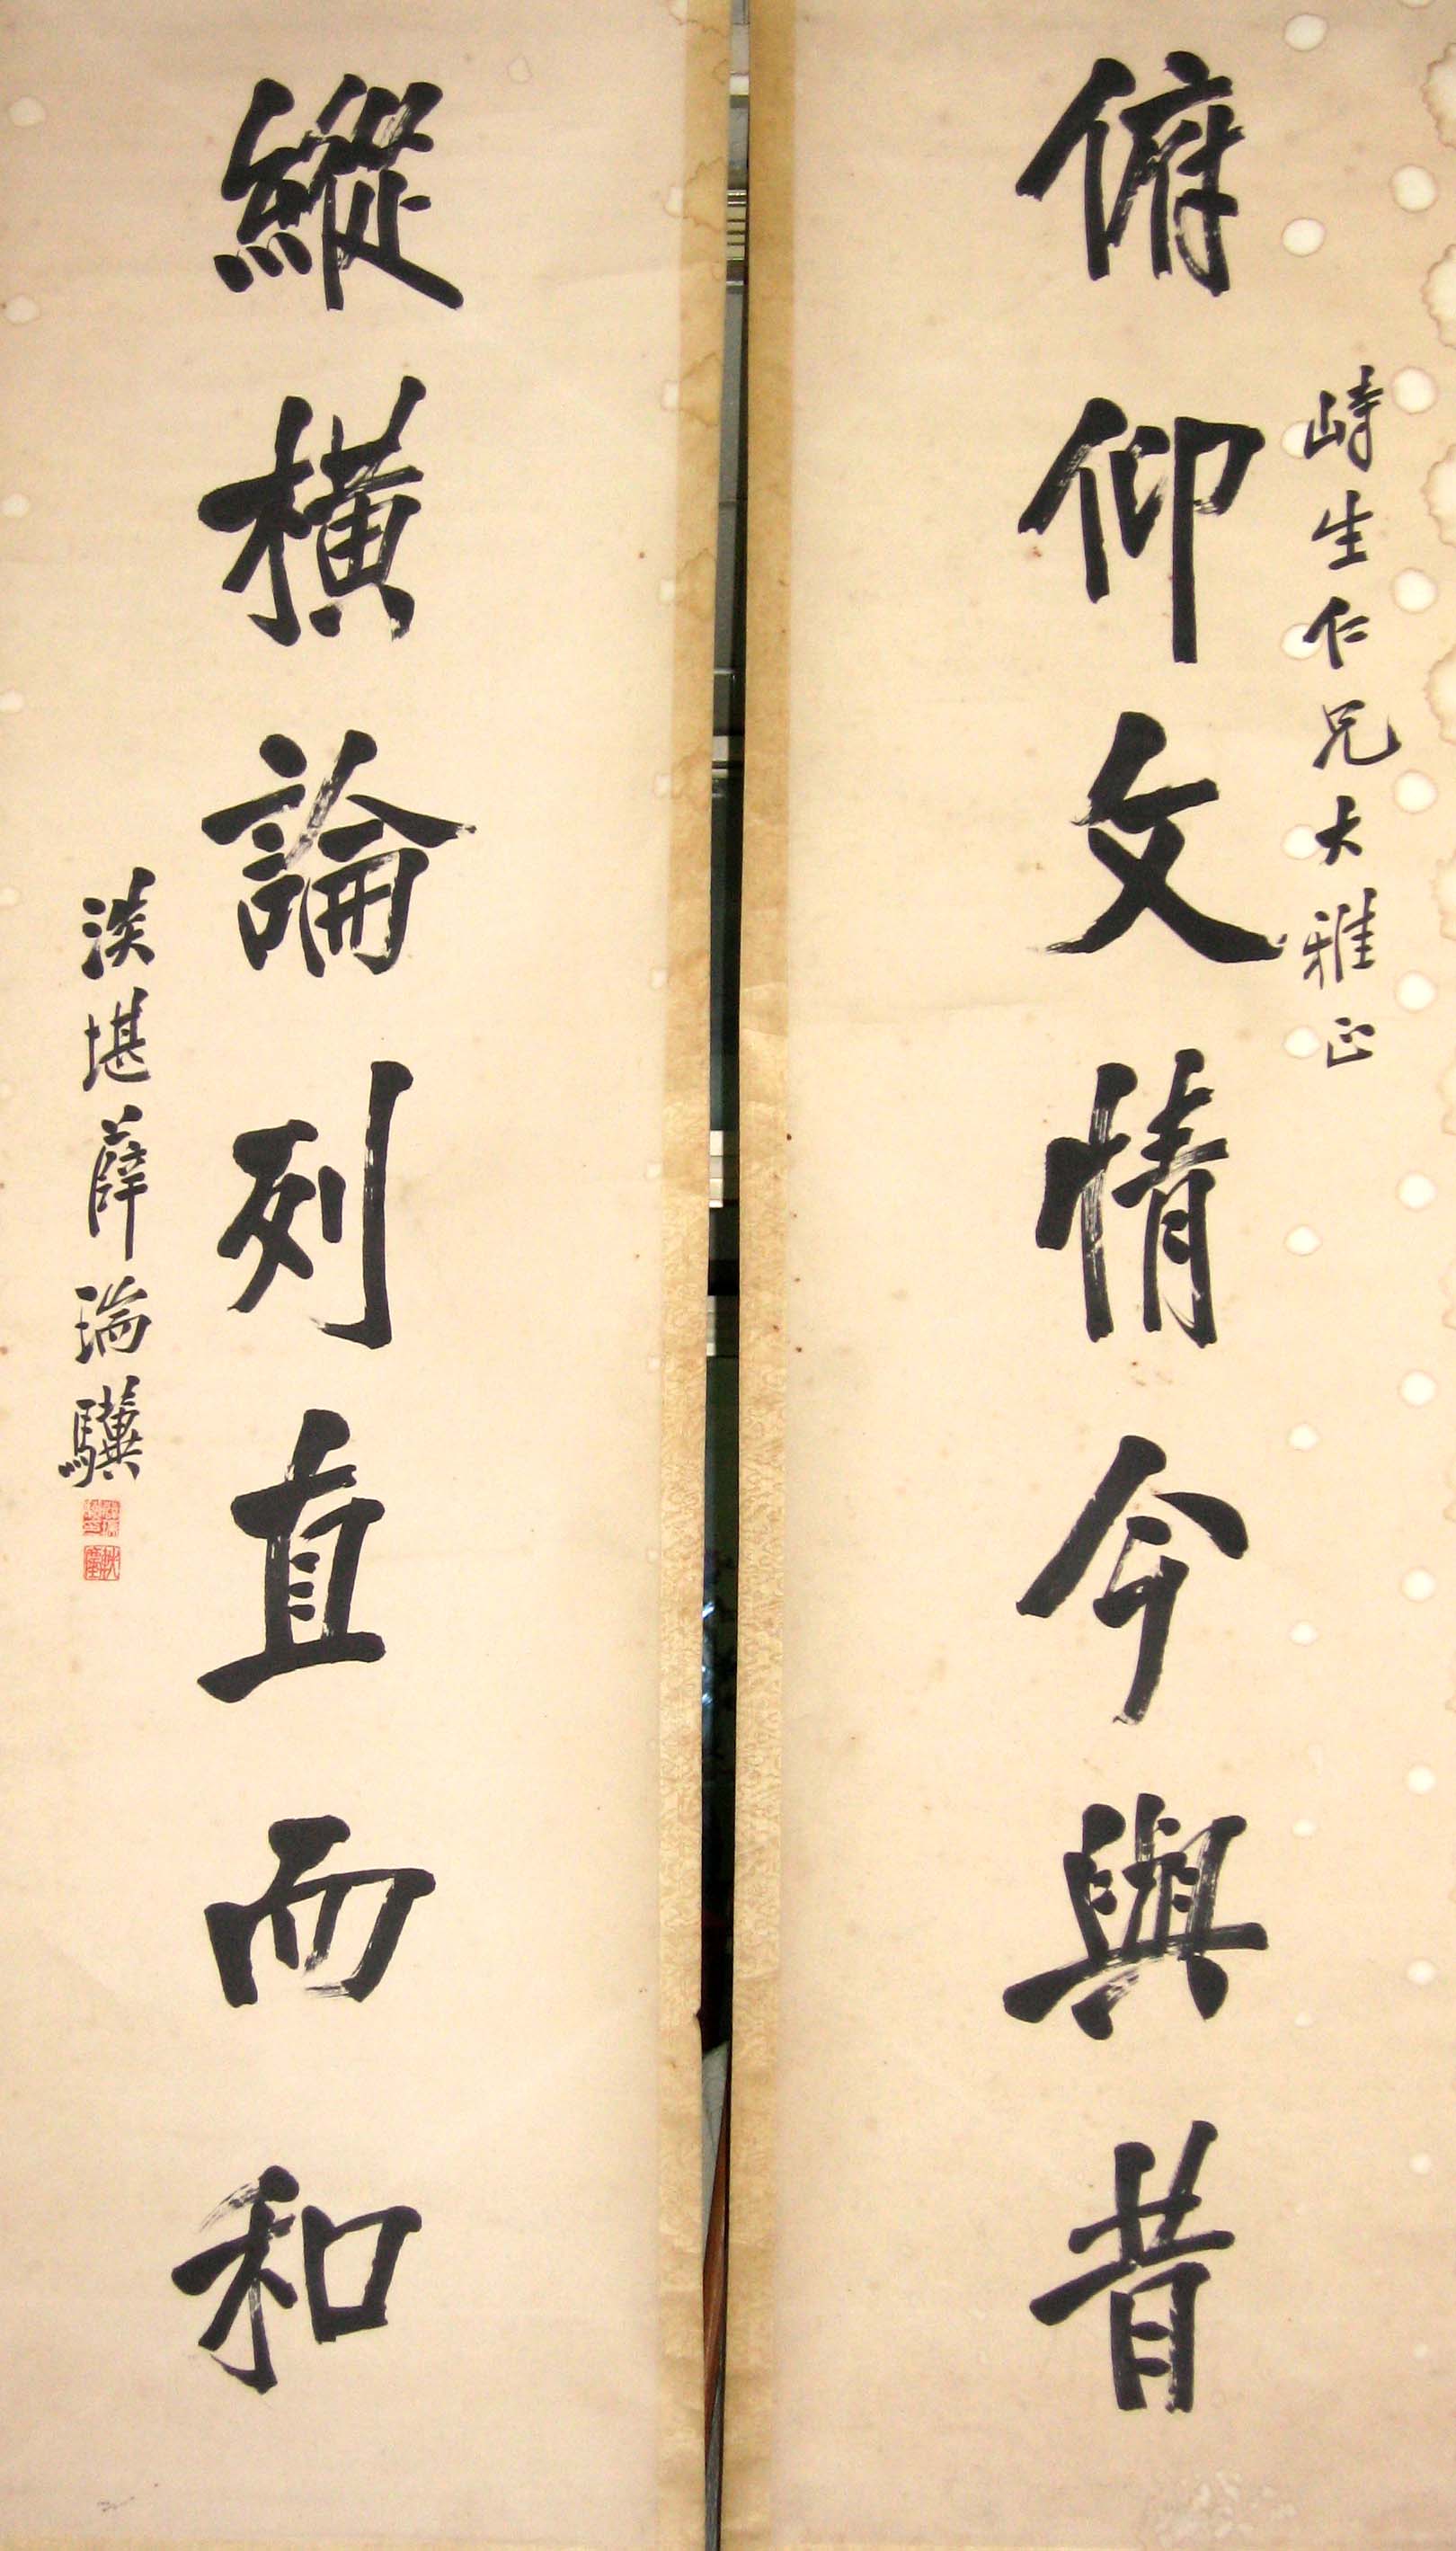 峙生仁兄大雅正
俯仰文情今與昔
縱橫論列直而和
淡堪薛瑞驥